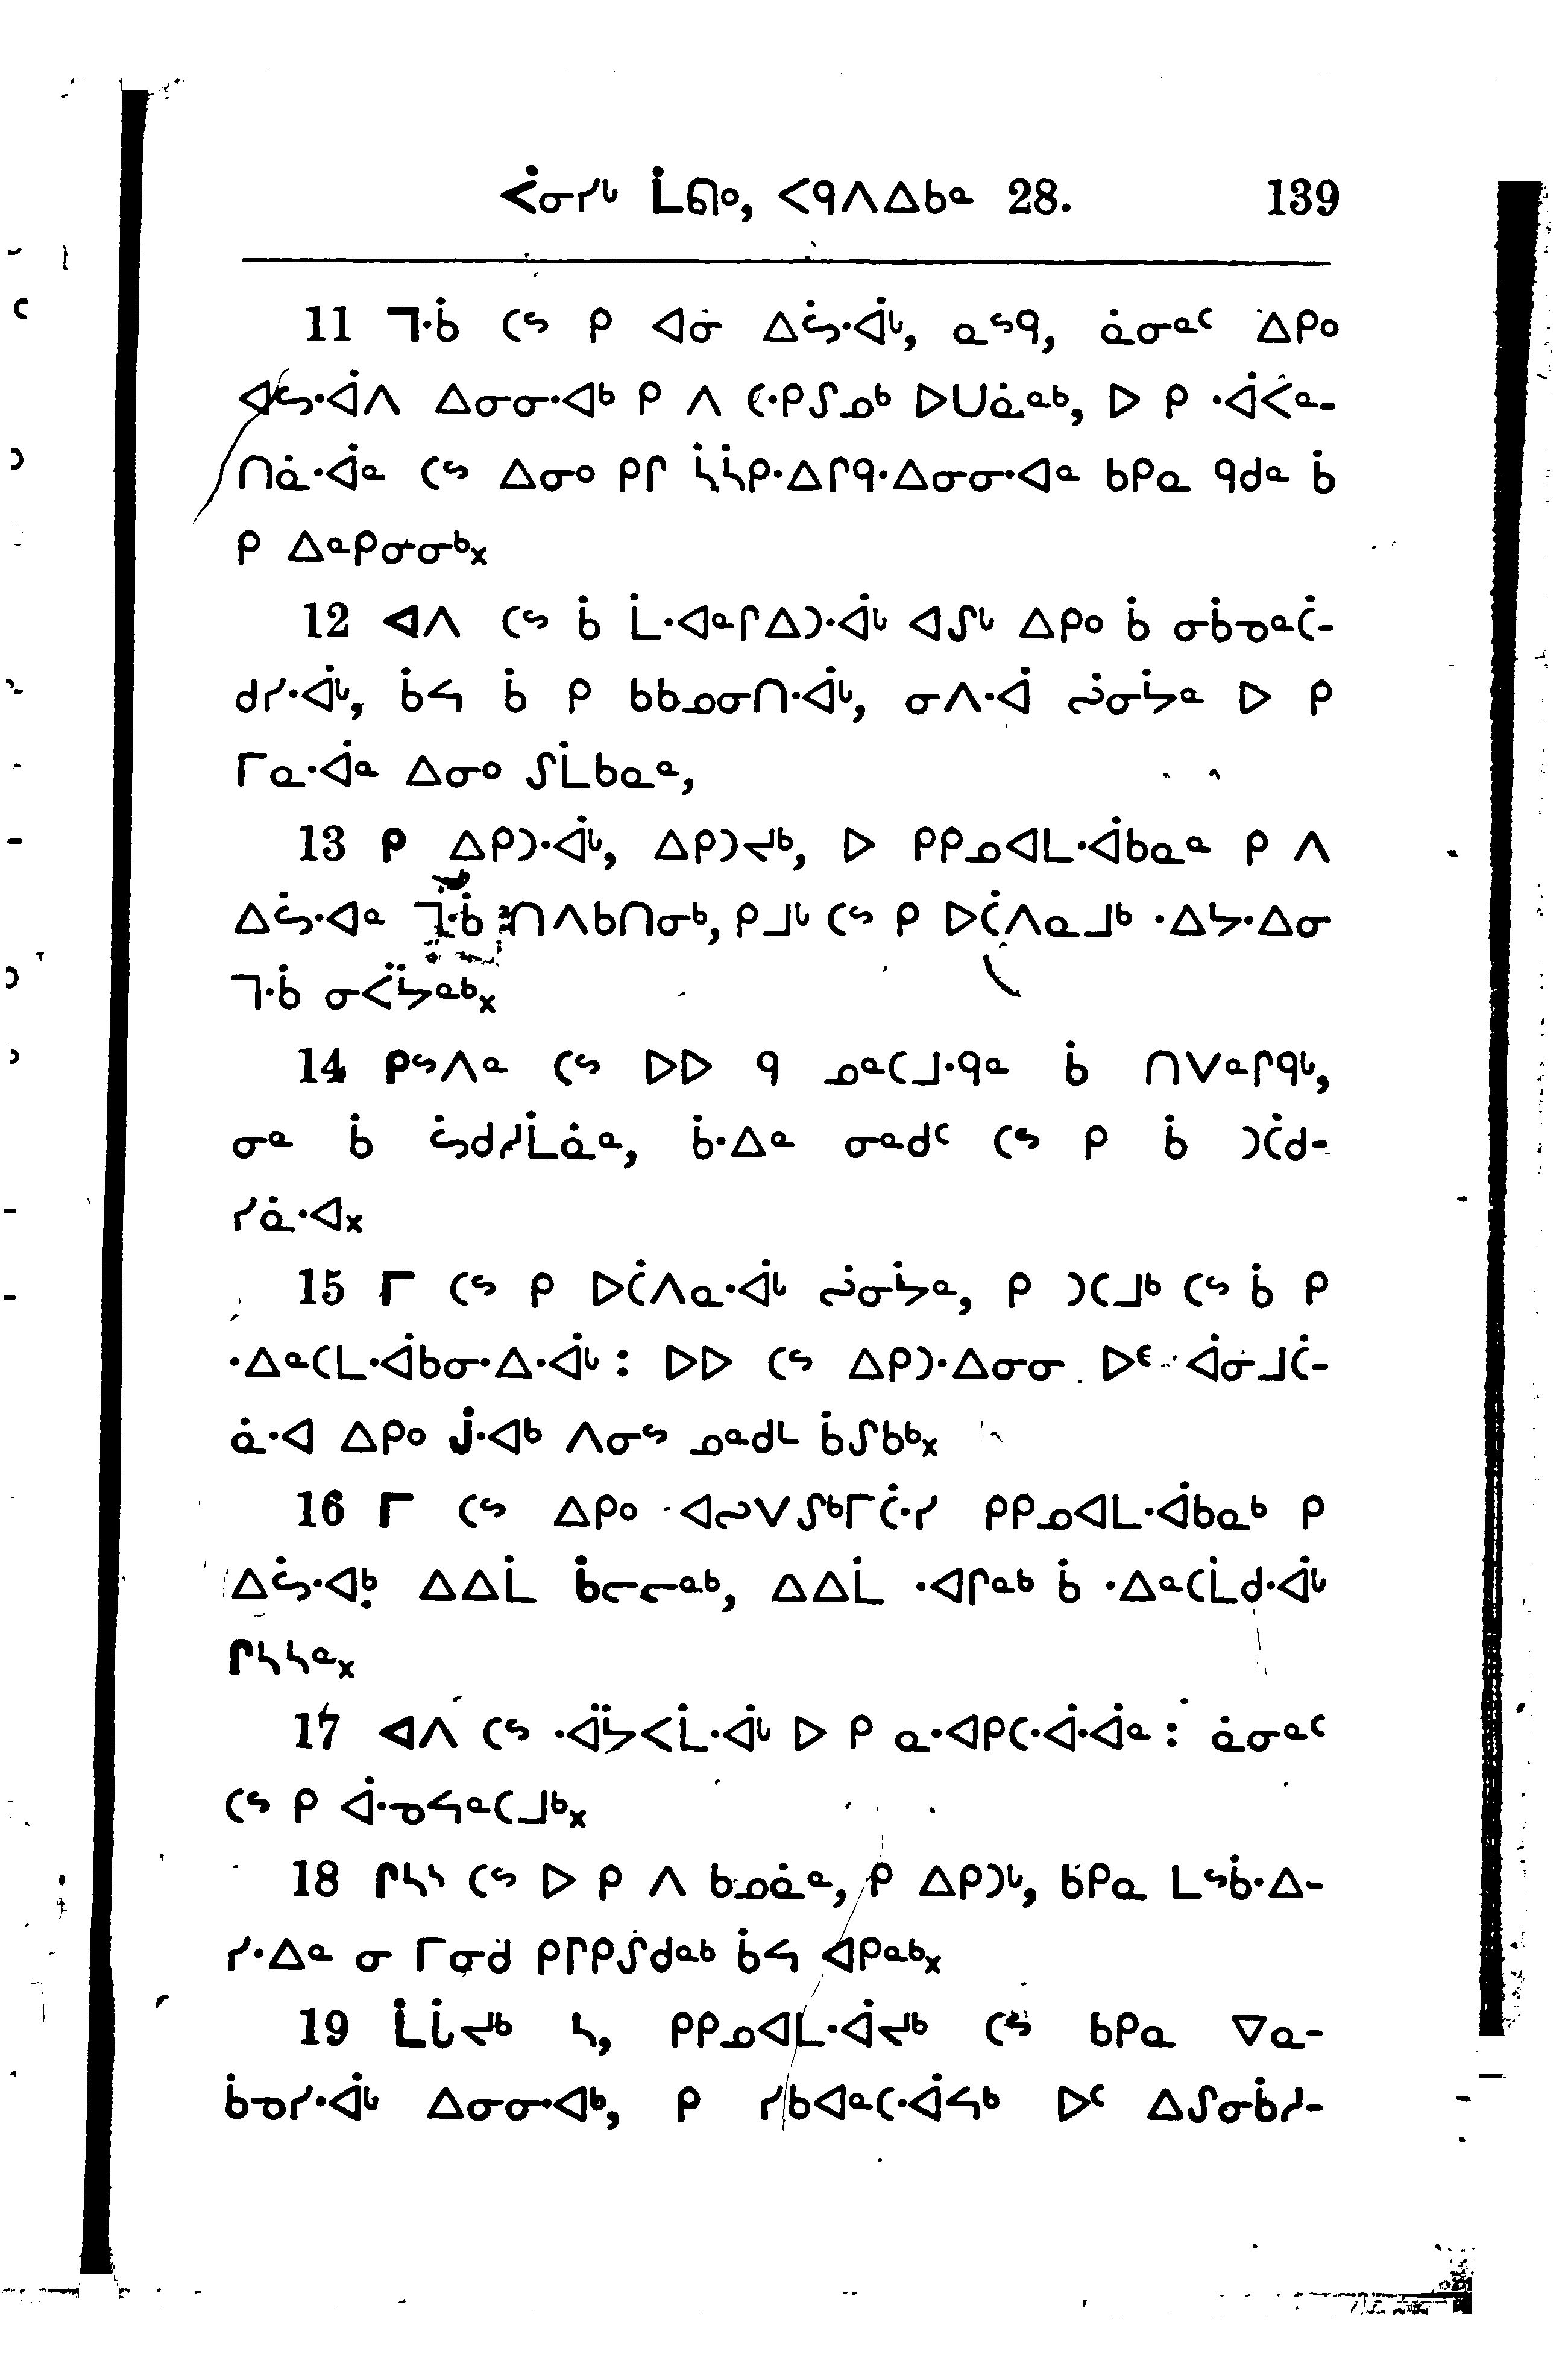 ᐹᓂᓯᒡ ᒫᘏᐤ, ᐸᑫᐱᐃᑲᓐ 28. 139
11 ᒣᐧᑳ ᑕᔥ ᑭ ᐊᓃ ᐃᔖᐧᐋᒡ, ᓇᔥᑫ, ᓈᓂᓐᑦ ᐃᑭᐤ
ᐊᔖᐧᐋᐱ ᐃᓂᓂᐧᐊᒃ ᑭ ᐱ ᑕᐧᑭᔑᓄᒃ ᐅᑌᓈᓐᒃ, ᐅ ᑭ ᐧᐋᐹᓐ-
ᑎᓈᐧᐋᓐ ᑕᔥ ᐃᓂᐤ ᑭᒋ ᓵᓵᑭᐧᐃᒋᑫᐧᐃᓂᓂᐧᐊᓐ ᑲᑭᓇ ᑫᑯᓐ ᑳ
ᑭ ᐃᓐᑭᓃᓂᒃ᙮
12 ᐊᐱ ᑕᔥ ᑳ ᒫᐧᐊᓐᒋᐃᑐᐧᐋᒡ ᐊᔑᒡ ᐃᑭᐤ ᑳ ᓂᑳᓀᓐᑖ-
ᑯᓯᐧᐋᒡ, ᑳᔦ ᑳ ᑭ ᑲᑲᓄᓂᑎᐧᐋᒡ, ᓂᐱᐧᐋ ᔔᓂᔮᓐ ᐅ ᑭ
ᒥᓇᐧᐋᓐ ᐃᓂᐤ ᔑᒫᑲᓇᓐ,
13 ᑭ ᐃᑭᑐᐧᐋᒡ, ᐃᑭᑐᔪᒃ, ᐅ ᑭᑭᓄᐊᒪᐧᐋᑲᓇᓐ ᑭ ᐱ
ᐃᔖᐧᐊᓐ ᒣᐧᑳ ᑎᐱᑲᑎᓂᒃ, ᑭᒧᒡ ᑕᔥ ᑭ ᐅᑖᐱᓇᒧᒃ ᐧᐃᔭᐧᐃᓂ
ᒣᐧᑳ ᓂᐹᔮᓐᒃ᙮
14 ᑭᔥᐱᓐ ᑕᔥ ᐅᐅ ᑫ ᓄᓐᑕᒧᐧᑫᓐ ᑳ ᑎᐯᓐᒋᑫᒡ,
ᓂᓐ ᑳ ᔖᑯᓱᒫᓈᓐ, ᑳᐧᐃᓐ ᓂᓐᑯᑦ ᑕᔥ ᑭ ᑳ ᑐᑖᑯ-
ᓯᓈᐧᐊ᙮
15 ᒥ ᑕᔥ ᑭ ᐅᑖᐱᓇᐧᐋᒡ ᔔᓂᔮᓐ, ᑭ ᑐᑕᒧᒃ ᑕᔥ ᑳ ᑭ
ᐧᐃᓐᑕᒪᐧᐋᑲᓂᐧᐃᐧᐋᒡ : ᐅᐅ ᑕᔥ ᐃᑭᑐᐧᐃᓂᓂ ᐅᑦ ᐋᓂᒧᑖ-
ᓈᐧᐊ ᐃᑭᐤ ᒎᐧᐊᒃ ᐱᓂᔥ ᓄᓐᑯᒻ ᑳᔑᑲᒃ᙮
16 ᒥ ᑕᔥ ᐃᑭᐤ ᐊᔓᐯᔑᒃᒥᑖᐧᓯ ᑭᑭᓄᐊᒪᐧᐋᑲᓇᒃ ᑭ
ᐃᔖᐧᐊᒃ ᐃᐃᒫ ᑳᓕᓕᓐᒃ, ᐃᐃᒫ ᐧᐊᒋᓐᒃ ᑳ ᐧᐃᓐᑕᒫᑯᐧᐋᒡ
ᒋᓴᓴᓐ᙮
17 ᐊᐱ ᑕᔥ ᐧᐋᔮᐸᒫᐧᐋᒡ ᐅ ᑭ ᓇᐧᐊᑭᑕᐧᐋᐧᐋᓐ : ᓈᓂᓐᑦ
ᑕᔥ ᑭ ᐋᐧᓀᔦᓐᑕᒧᒃ᙮
18 ᒋᓴᔅ ᑕᔥ ᐅ ᑭ ᐱ ᑲᓄᓈᓐ, ᑭ ᐃᑭᑐᒡ, ᑲᑭᓇ ᒪᔥᑳᐧᐃ-
ᓯᐧᐃᓐ ᓂ ᒥᓂᑰ ᑭᒋᑭᔒᑯᓐᒃ ᑳᔦ ᐊᑭᓐᒃ᙮
19 ᒫᒑᔪᒃ ᓴ, ᑭᑭᓄᐊᒪᐧᐋᔪᒃ ᑕᔥ ᑲᑭᓇ ᐁᓇ-
ᑳᓀᓯᐧᐋᒡ ᐃᓂᓂᐧᐊᒃ, ᑭ ᓯᑲᐊᓐᑕᐧᐋᔦᒃ ᐅᑦ ᐃᔑᓂᑳᓱ-